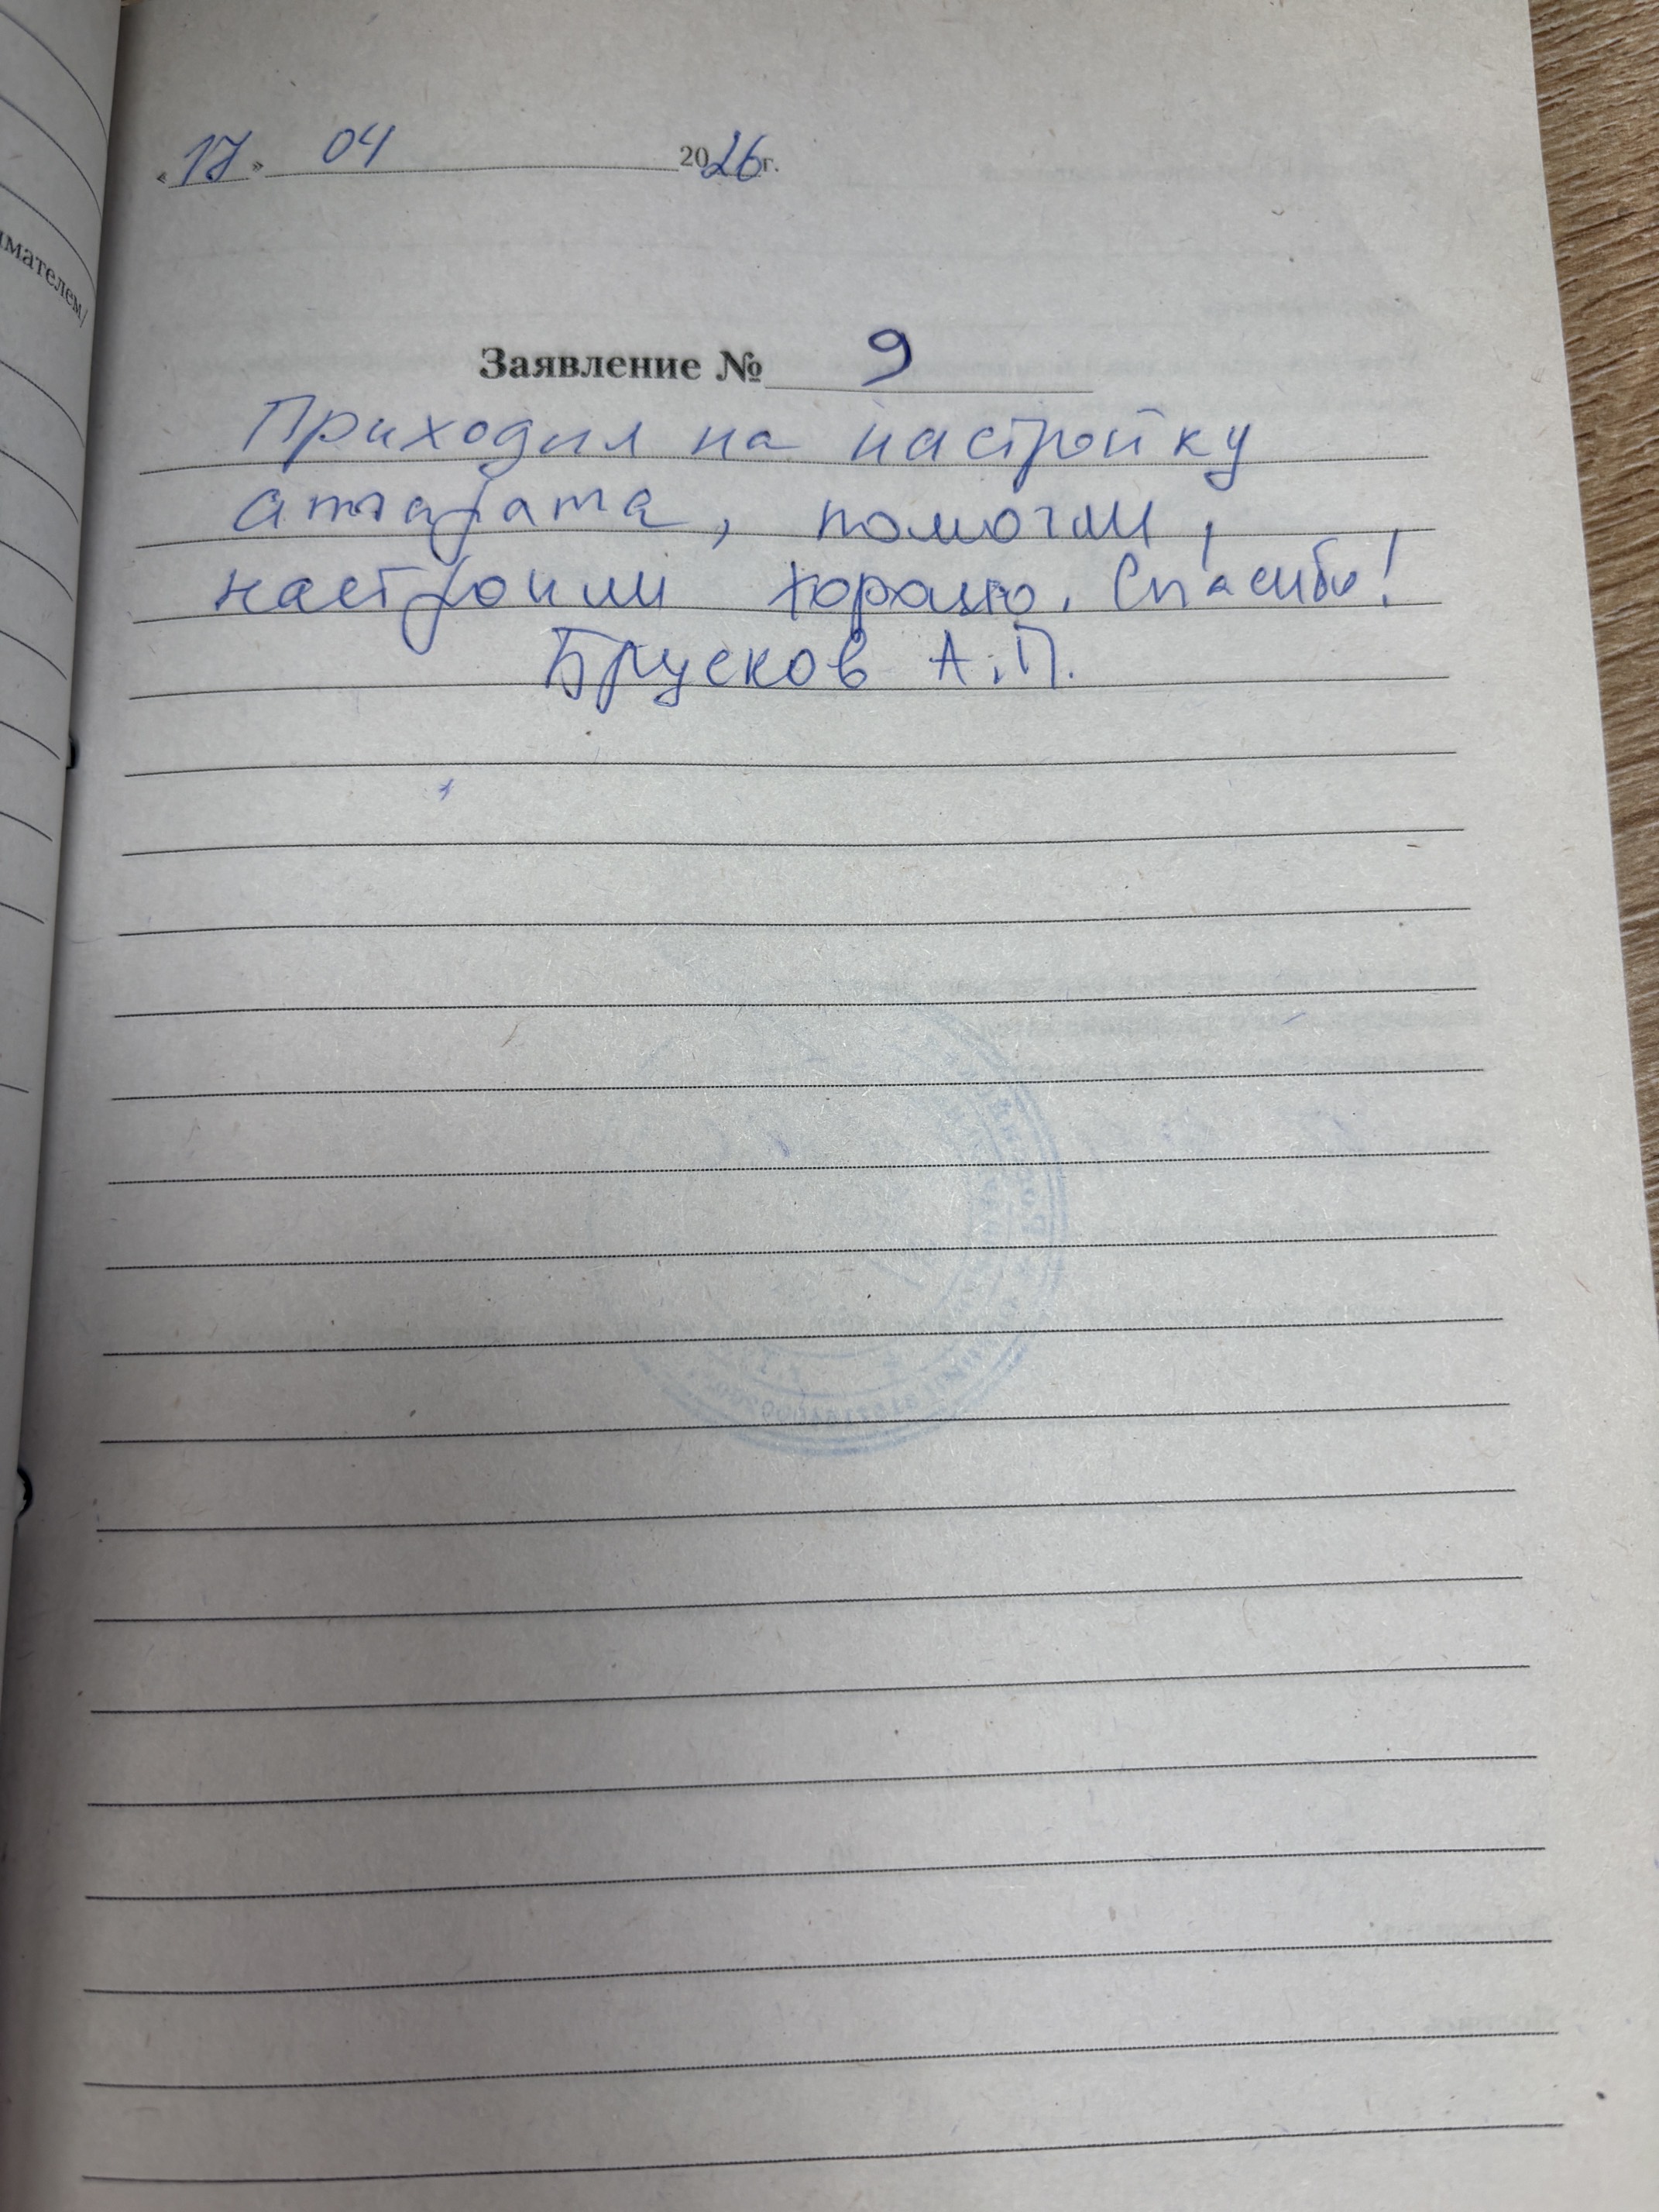 имателем/
«17» 04 2026г.
Заявление № 9
Приходил на настройку
аппарата, помогли,
настроили хорошо. Спасибо!
Брусков А.П.